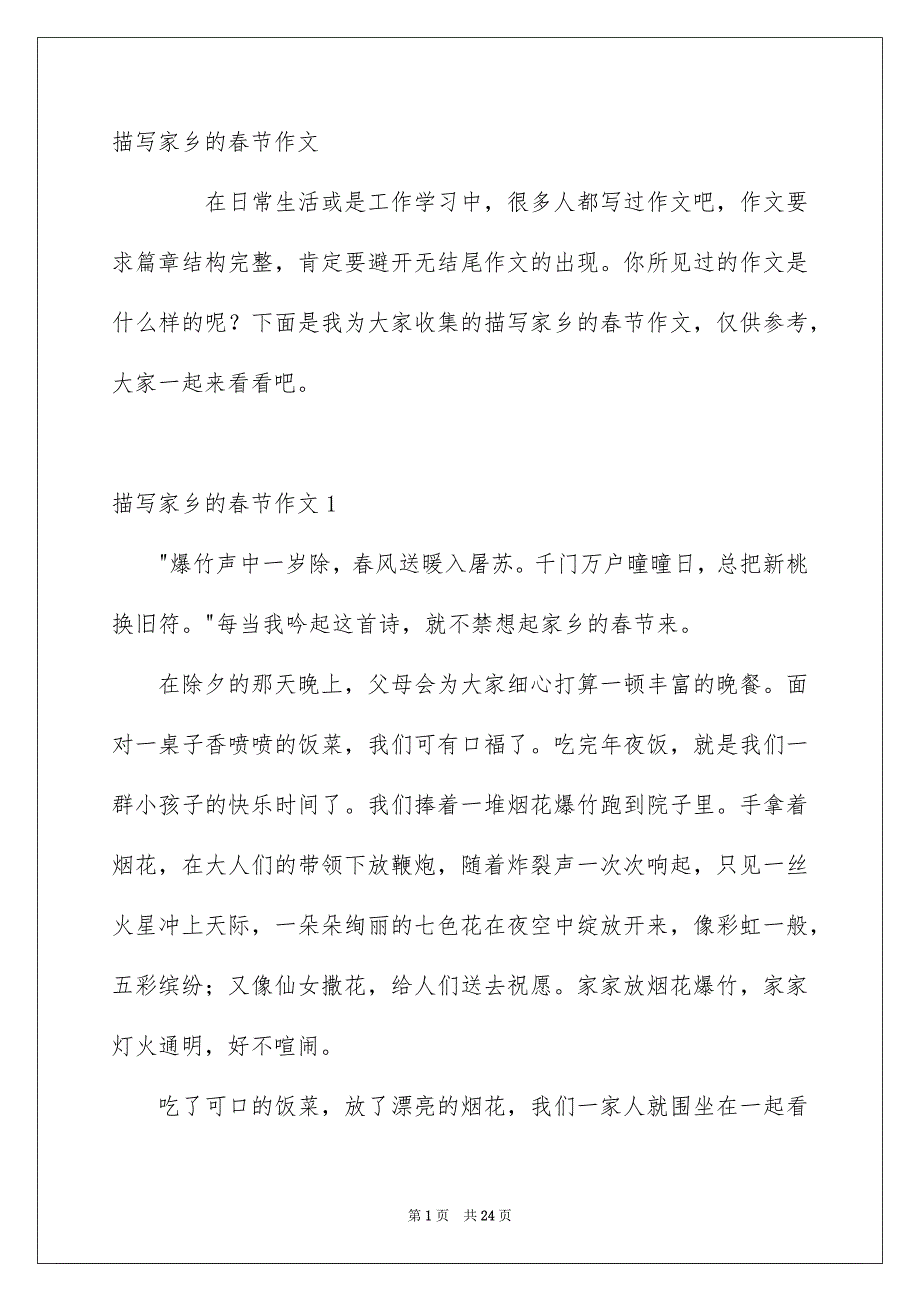 描写家乡的春节作文
在日常生活或是工作学习中，很多人都写过作文吧，作文要
求篇章结构完整，肯定要避开无结尾作文的出现。你所见过的作文是
什么样的呢？下面是我为大家收集的描写家乡的春节作文，仅供参考，
大家一起来看看吧。
描写家乡的春节作文 1
"爆竹声中一岁除，春风送暖入屠苏。千门万户曈曈日，总把新桃
换旧符。"每当我吟起这首诗，就不禁想起家乡的春节来。
在除夕的那天晚上，父母会为大家细心打算一顿丰富的晚餐。面
对一桌子香喷喷的饭菜，我们可有口福了。吃完年夜饭，就是我们一
群小孩子的快乐时间了。我们捧着一堆烟花爆竹跑到院子里。手拿着
烟花，在大人们的带领下放鞭炮，随着炸裂声一次次响起，只见一丝
火星冲上天际，一朵朵绚丽的七色花在夜空中绽放开来，像彩虹一般，
五彩缤纷；又像仙女撒花，给人们送去祝愿。家家放烟花爆竹，家家
灯火通明，好不喧闹。
吃了可口的饭菜，放了漂亮的烟花，我们一家人就围坐在一起看
第 1 页 共 24 页